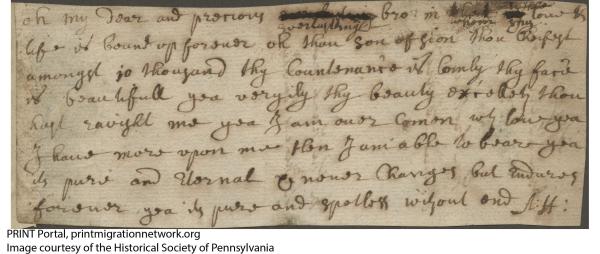 oh my dear and precious bro: in whose love &
everlasting whom my
life is bound up forever oh thou son of sion thou Chefest
amongst 10 thousand thy Countenance is Comly thy face
is beautifull yea veryly thy beauty excelleth thou
hast ravisht me yea J am over Comen wth love yea
J have more upon me then J am able to beare yea
its pure and Eternal & never Changes but indures
forever yea its pure and spotless without end
PRINT Portal, printmigrationnetwork.org
Image courtesy of the Historical Society of Pennsylvania